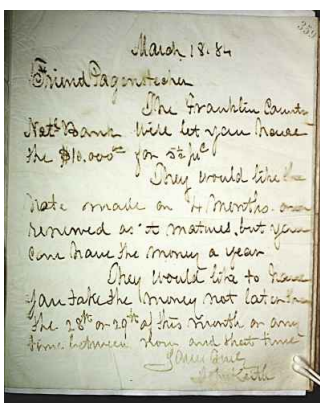 359
March 18. 84
Friend Pagenstecher
The Franklin County
Natl Bank will let you have
the $10.000°° for 5½ pc
They would like the
note made on 4 months and
renewed as it matures, but you
can have the money a year
They would like to have
you take the money not later than
the 28th or 29th of this month or any
time between now and that time
Yours truly
Keith